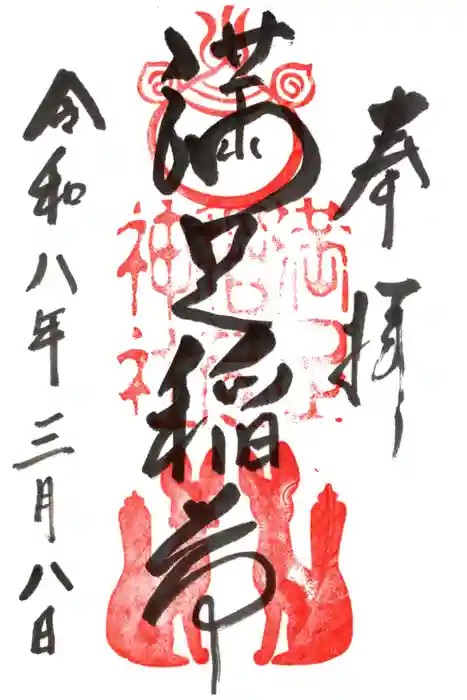 奉拝
満足稲荷
満足稲荷神社
令和八年三月八日